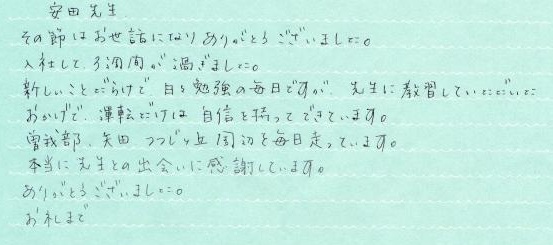 安田先生
その節はお世話になりありがとうございました。
入社して、3週間が過ぎました。
新しいことだらけで 日々勉強の毎日ですが、先生に教習していただいた
おかげで、運転だけは自信を持ってできています。
曽我部、矢田 つつじヶ丘周辺を毎日走っています。
本当に先生との出会いに感謝しています。
ありがとうございました。
お礼まで